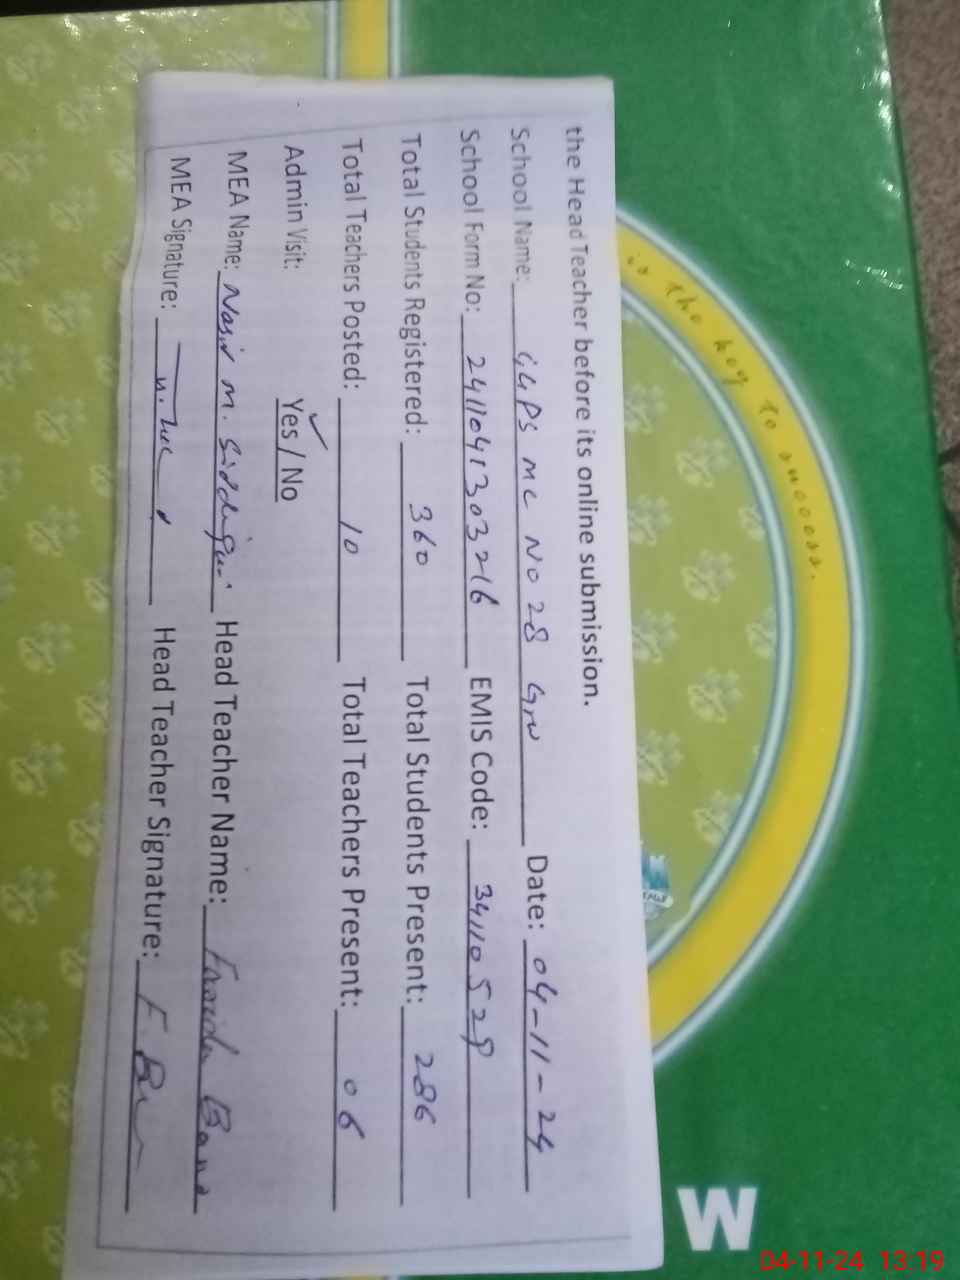 the Head Teacher before its online submission.
School Name: GGPS MC NO 28 GRW Date: 04-11-24
School Form No: 2411041303216 EMIS Code: 34110528
Total Students Registered: 360 Total Students Present: 286
Total Teachers Posted: 10 Total Teachers Present: 06
Admin Visit: Yes / No
MEA Name: Nasir M. Siddiqui Head Teacher Name: Farida Bano
MEA Signature: Head Teacher Signature:
is the key to success.
W
04-11-24 13:19